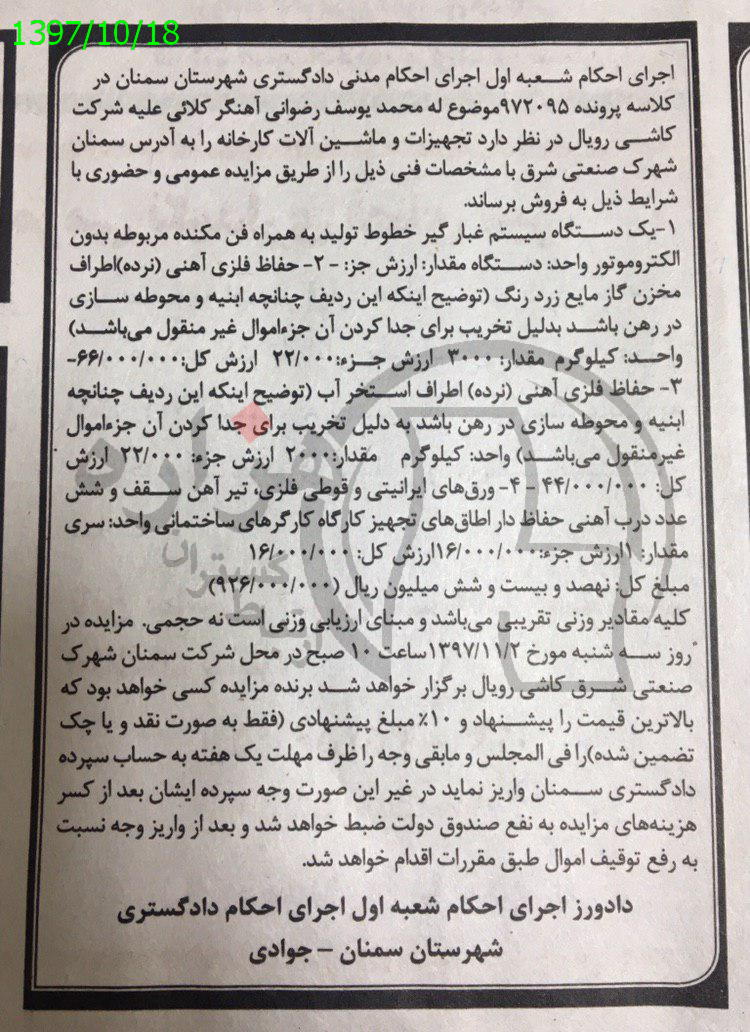 1397/10/18
اجرای احکام شعبه اول اجرای احکام مدنی دادگستری شهرستان سمنان در
کلاسه پرونده ۹۷۲۰۹۵موضوع له محمد یوسف رضوانی آهنگر کلائی علیه شرکت
کاشی رویال در نظر دارد تجهیزات و ماشین آلات کارخانه را به آدرس سمنان
شهرک صنعتی شرق با مشخصات فنی ذیل را از طریق مزایده عمومی و حضوری با
شرایط ذیل به فروش برساند.
۱-یک دستگاه سیستم غبار گیر خطوط تولید به همراه فن مکنده مربوطه بدون
الکتروموتور واحد: دستگاه مقدار: ارزش جز: - ۲- حفاظ فلزی آهنی (نرده)اطراف
مخزن گاز مایع زرد رنگ (توضیح اینکه این ردیف چنانچه ابنیه و محوطه سازی
در رهن باشد بدلیل تخریب برای جدا کردن آن جزءاموال غیر منقول می‌باشد)
واحد: کیلوگرم مقدار: ۳۰۰۰ ارزش جزء: ۲۲/۰۰۰ ارزش کل: ۶۶/۰۰۰/۰۰۰-
۳- حفاظ فلزی آهنی (نرده) اطراف استخر آب (توضیح اینکه این ردیف چنانچه
ابنیه و محوطه سازی در رهن باشد به دلیل تخریب برای جدا کردن آن جزءاموال
غیرمنقول می‌باشد) واحد: کیلوگرم مقدار: ۲۰۰۰ ارزش جزء: ۲۲/۰۰۰ ارزش
کل: ۴۴/۰۰۰/۰۰۰ - ۴- ورق‌های ایرانیتی و قوطی فلزی، تیر آهن سقف و شش
عدد درب آهنی حفاظ دار اطاق‌های تجهیز کارگاه کارگرهای ساختمانی واحد: سری
مقدار: ۱ارزش جزء:۱۶/۰۰۰/۰۰۰ارزش کل: ۱۶/۰۰۰/۰۰۰
مبلغ کل: نهصد و بیست و شش میلیون ریال (۹۲۶/۰۰۰/۰۰۰)
کلیه مقادیر وزنی تقریبی می‌باشد و مبنای ارزیابی وزنی است نه حجمی. مزایده در
روز سه شنبه مورخ ۱۳۹۷/۱۱/۲ساعت ۱۰ صبح در محل شرکت سمنان شهرک
صنعتی شرق کاشی رویال برگزار خواهد شد برنده مزایده کسی خواهد بود که
بالاترین قیمت را پیشنهاد و ۱۰٪ مبلغ پیشنهادی (فقط به صورت نقد و یا چک
تضمین شده)را فی المجلس و مابقی وجه را ظرف مهلت یک هفته به حساب سپرده
دادگستری سمنان واریز نماید در غیر این صورت وجه سپرده ایشان بعد از کسر
هزینه‌های مزایده به نفع صندوق دولت ضبط خواهد شد و بعد از واریز وجه نسبت
به رفع توقیف اموال طبق مقررات اقدام خواهد شد.
دادورز اجرای احکام شعبه اول اجرای احکام دادگستری
شهرستان سمنان – جوادی